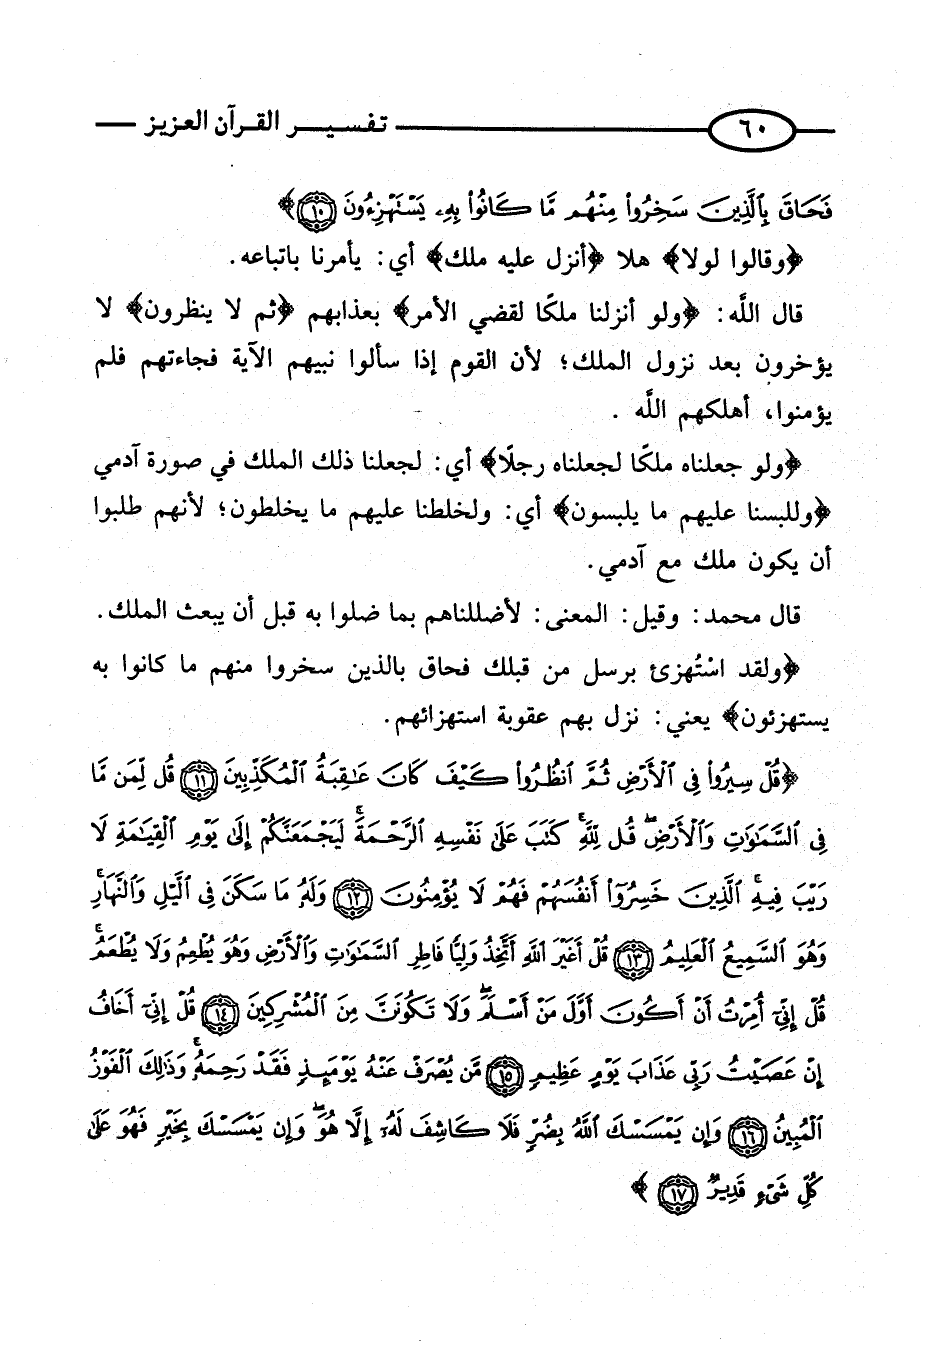 ٦٠ تفسير القرآن العزيز
فَحَاقَ بِٱلَّذِينَ سَخِرُوا۟ مِنْهُم مَّا كَانُوا۟ بِهِۦ يَسْتَهْزِءُونَ ١٠﴾
﴿وقالوا لولا﴾ هلا ﴿أنزل عليه ملك﴾ أي: يأمرنا باتباعه.
قال اللَّه: ﴿ولو أنزلنا ملكًا لقضي الأمر﴾ بعذابهم ﴿ثم لا ينظرون﴾ لا
يؤخرون بعد نزول الملك؛ لأن القوم إذا سألوا نبيهم الآية فجاءتهم فلم
يؤمنوا، أهلكهم اللَّه .
﴿ولو جعلناه ملكًا لجعلناه رجلًا﴾ أي: لجعلنا ذلك الملك في صورة آدمي
﴿وللبسنا عليهم ما يلبسون﴾ أي: ولخلطنا عليهم ما يخلطون؛ لأنهم طلبوا
أن يكون ملك مع آدمي.
قال محمد: وقيل: المعنى: لأضللناهم بما ضلوا به قبل أن يبعث الملك.
﴿ولقد اسْتُهزئ برسل من قبلك فحاق بالذين سخروا منهم ما كانوا به
يستهزئون﴾ يعني: نزل بهم عقوبة استهزائهم.
﴿قُلْ سِيرُوا۟ فِى ٱلْأَرْضِ ثُمَّ ٱنظُرُوا۟ كَيْفَ كَانَ عَٰقِبَةُ ٱلْمُكَذِّبِينَ ١١ قُل لِّمَن مَّا
فِى ٱلسَّمَٰوَٰتِ وَٱلْأَرْضِۖ قُل لِّلَّهِۚ كَتَبَ عَلَىٰ نَفْسِهِ ٱلرَّحْمَةَۚ لَيَجْمَعَنَّكُمْ إِلَىٰ يَوْمِ ٱلْقِيَٰمَةِ لَا
رَيْبَ فِيهِۚ ٱلَّذِينَ خَسِرُوٓا۟ أَنفُسَهُمْ فَهُمْ لَا يُؤْمِنُونَ ١٢ وَلَهُۥ مَا سَكَنَ فِى ٱلَّيْلِ وَٱلنَّهَارِۚ
وَهُوَ ٱلسَّمِيعُ ٱلْعَلِيمُ ١٣ قُلْ أَغَيْرَ ٱللَّهِ أَتَّخِذُ وَلِيًّا فَاطِرِ ٱلسَّمَٰوَٰتِ وَٱلْأَرْضِ وَهُوَ يُطْعِمُ وَلَا يُطْعَمُۗ
قُلْ إِنِّىٓ أُمِرْتُ أَنْ أَكُونَ أَوَّلَ مَنْ أَسْلَمَۖ وَلَا تَكُونَنَّ مِنَ ٱلْمُشْرِكِينَ ١٤ قُلْ إِنِّىٓ أَخَافُ
إِنْ عَصَيْتُ رَبِّى عَذَابَ يَوْمٍ عَظِيمٍ ١٥ مَّن يُصْرَفْ عَنْهُ يَوْمَئِذٍ فَقَدْ رَحِمَهُۥۚ وَذَٰلِكَ ٱلْفَوْزُ
ٱلْمُبِينُ ١٦ وَإِن يَمْسَسْكَ ٱللَّهُ بِضُرٍّ فَلَا كَاشِفَ لَهُۥٓ إِلَّا هُوَۖ وَإِن يَمْسَسْكَ بِخَيْرٍ فَهُوَ عَلَىٰ
كُلِّ شَىْءٍ قَدِيرٌ ١٧﴾